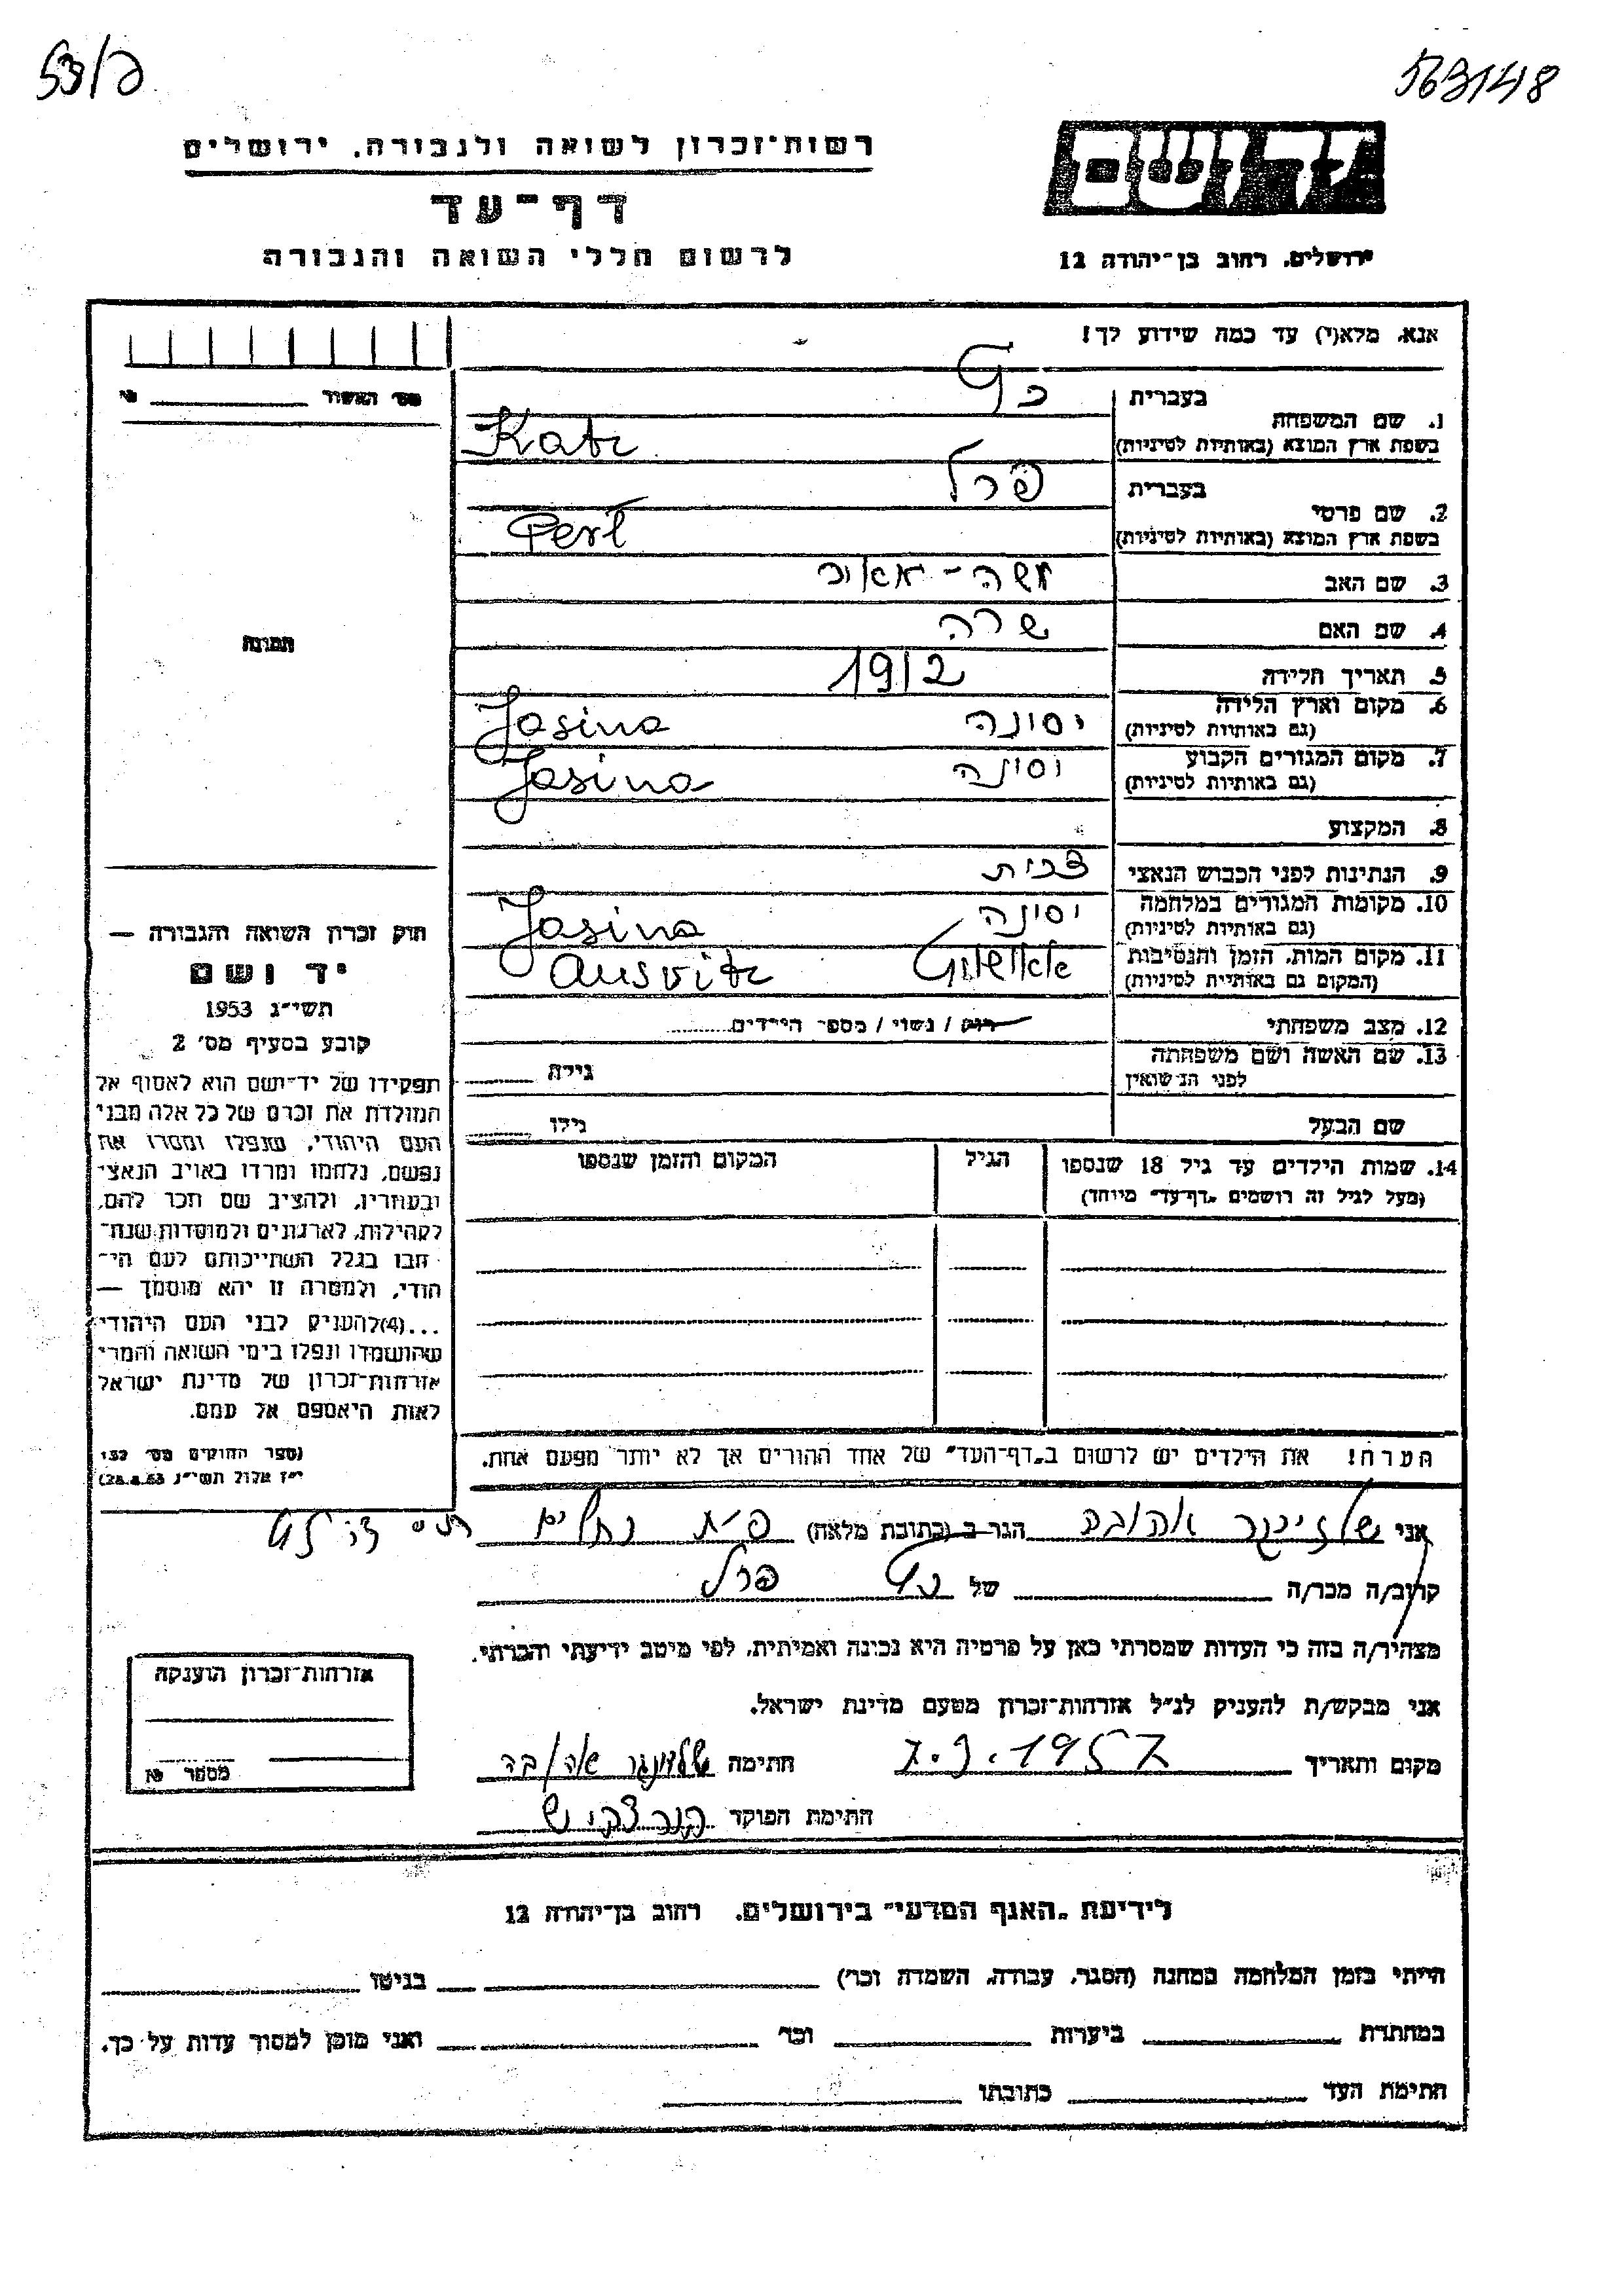 53/כ
563148
רשות־זכרון לשואה ולגבורה, ירושלים
דף־עד
לרשום חללי השואה והגבורה
יד ושם
ירושלים, רחוב בן־יהודה 12
אנא, מלא(י) עד כמה שידוע לך!
מס' האשור № 
1. שם המשפחה
בעברית כץ
בשפת ארץ המוצא (באותיות לטיניות) Katz
2. שם פרטי
בעברית פרל
בשפת ארץ המוצא (באותיות לטיניות) Perl
3. שם האב משה־
4. שם האם שרה
5. תאריך הלידה 1912
6. מקום וארץ הלידה (גם באותיות לטיניות) יסינה Jasina
7. מקום המגורים הקבוע (גם באותיות לטיניות) יסינה Jasina
8. המקצוע
9. הנתינות לפני הכבוש הנאצי צ׳כית
10. מקומות המגורים במלחמה (גם באותיות לטיניות) יסינה Jasina
11. מקום המות, הזמן והנסיבות (המקום גם באותיות לטיניות) Ausvitz
12. מצב משפחתי רווק / נשוי / מספר הילדים
13. שם האשה ושם משפחתה לפני הנשואין גילה
שם הבעל גילו
14. שמות הילדים עד גיל 18 שנספו
(מעל לגיל זה רושמים „דף־עד״ מיוחד)
הגיל
המקום והזמן שנספו
הערה! את הילדים יש לרשום ב„דף־העד״ של אחד ההורים אך לא יותר מפעם אחת.
תמונה
חוק זכרון השואה והגבורה —
יד ושם
תשי״ג 1953
קובע בסעיף מס׳ 2
תפקידו של יד־ושם הוא לאסוף אל
המולדת את זכרם של כל אלה מבני
העם היהודי, שנפלו ומסרו את
נפשם, נלחמו ומרדו באויב הנאצי
ובעוזריו, ולהציב שם וזכר להם,
לקהילות, לארגונים ולמוסדות שנח־
רבו בגלל השתייכותם לעם הי־
הודי, ולמטרה זו יהא מוסמך —
...(4)להעניק לבני העם היהודי
שהושמדו ונפלו בימי השואה והמרי
אזרחות־זכרון של מדינת ישראל
לאות היאספם אל עמם.
(ספר החוקים מס׳ 132
י״ז אלול תשי״ג 28.8.53)
אני שלזינגר אהובה הגר ב (כתובת מלאה)
קרוב/ה מכר/ה של כץ פרל
מצהיר/ה בזה כי העדות שמסרתי כאן על פרטיה היא נכונה ואמיתית, לפי מיטב ידיעתי והכרתי.
אני מבקש/ת להעניק לנ״ל אזרחות־זכרון מטעם מדינת ישראל.
מקום ותאריך 7.9.1957 חתימה שלזינגר אהובה
חתימת הפוקד
אזרחות־זכרון הוענקה
מספר №
לידיעת „האגף המדעי״ בירושלים, רחוב בן־יהודה 12
הייתי בזמן המלחמה במחנה (הסגר, עבודה, השמדה וכו׳) בגיטו
במחתרת ביערות וכו׳ ואני מוכן למסור עדות על כך.
חתימת העד כתובתו